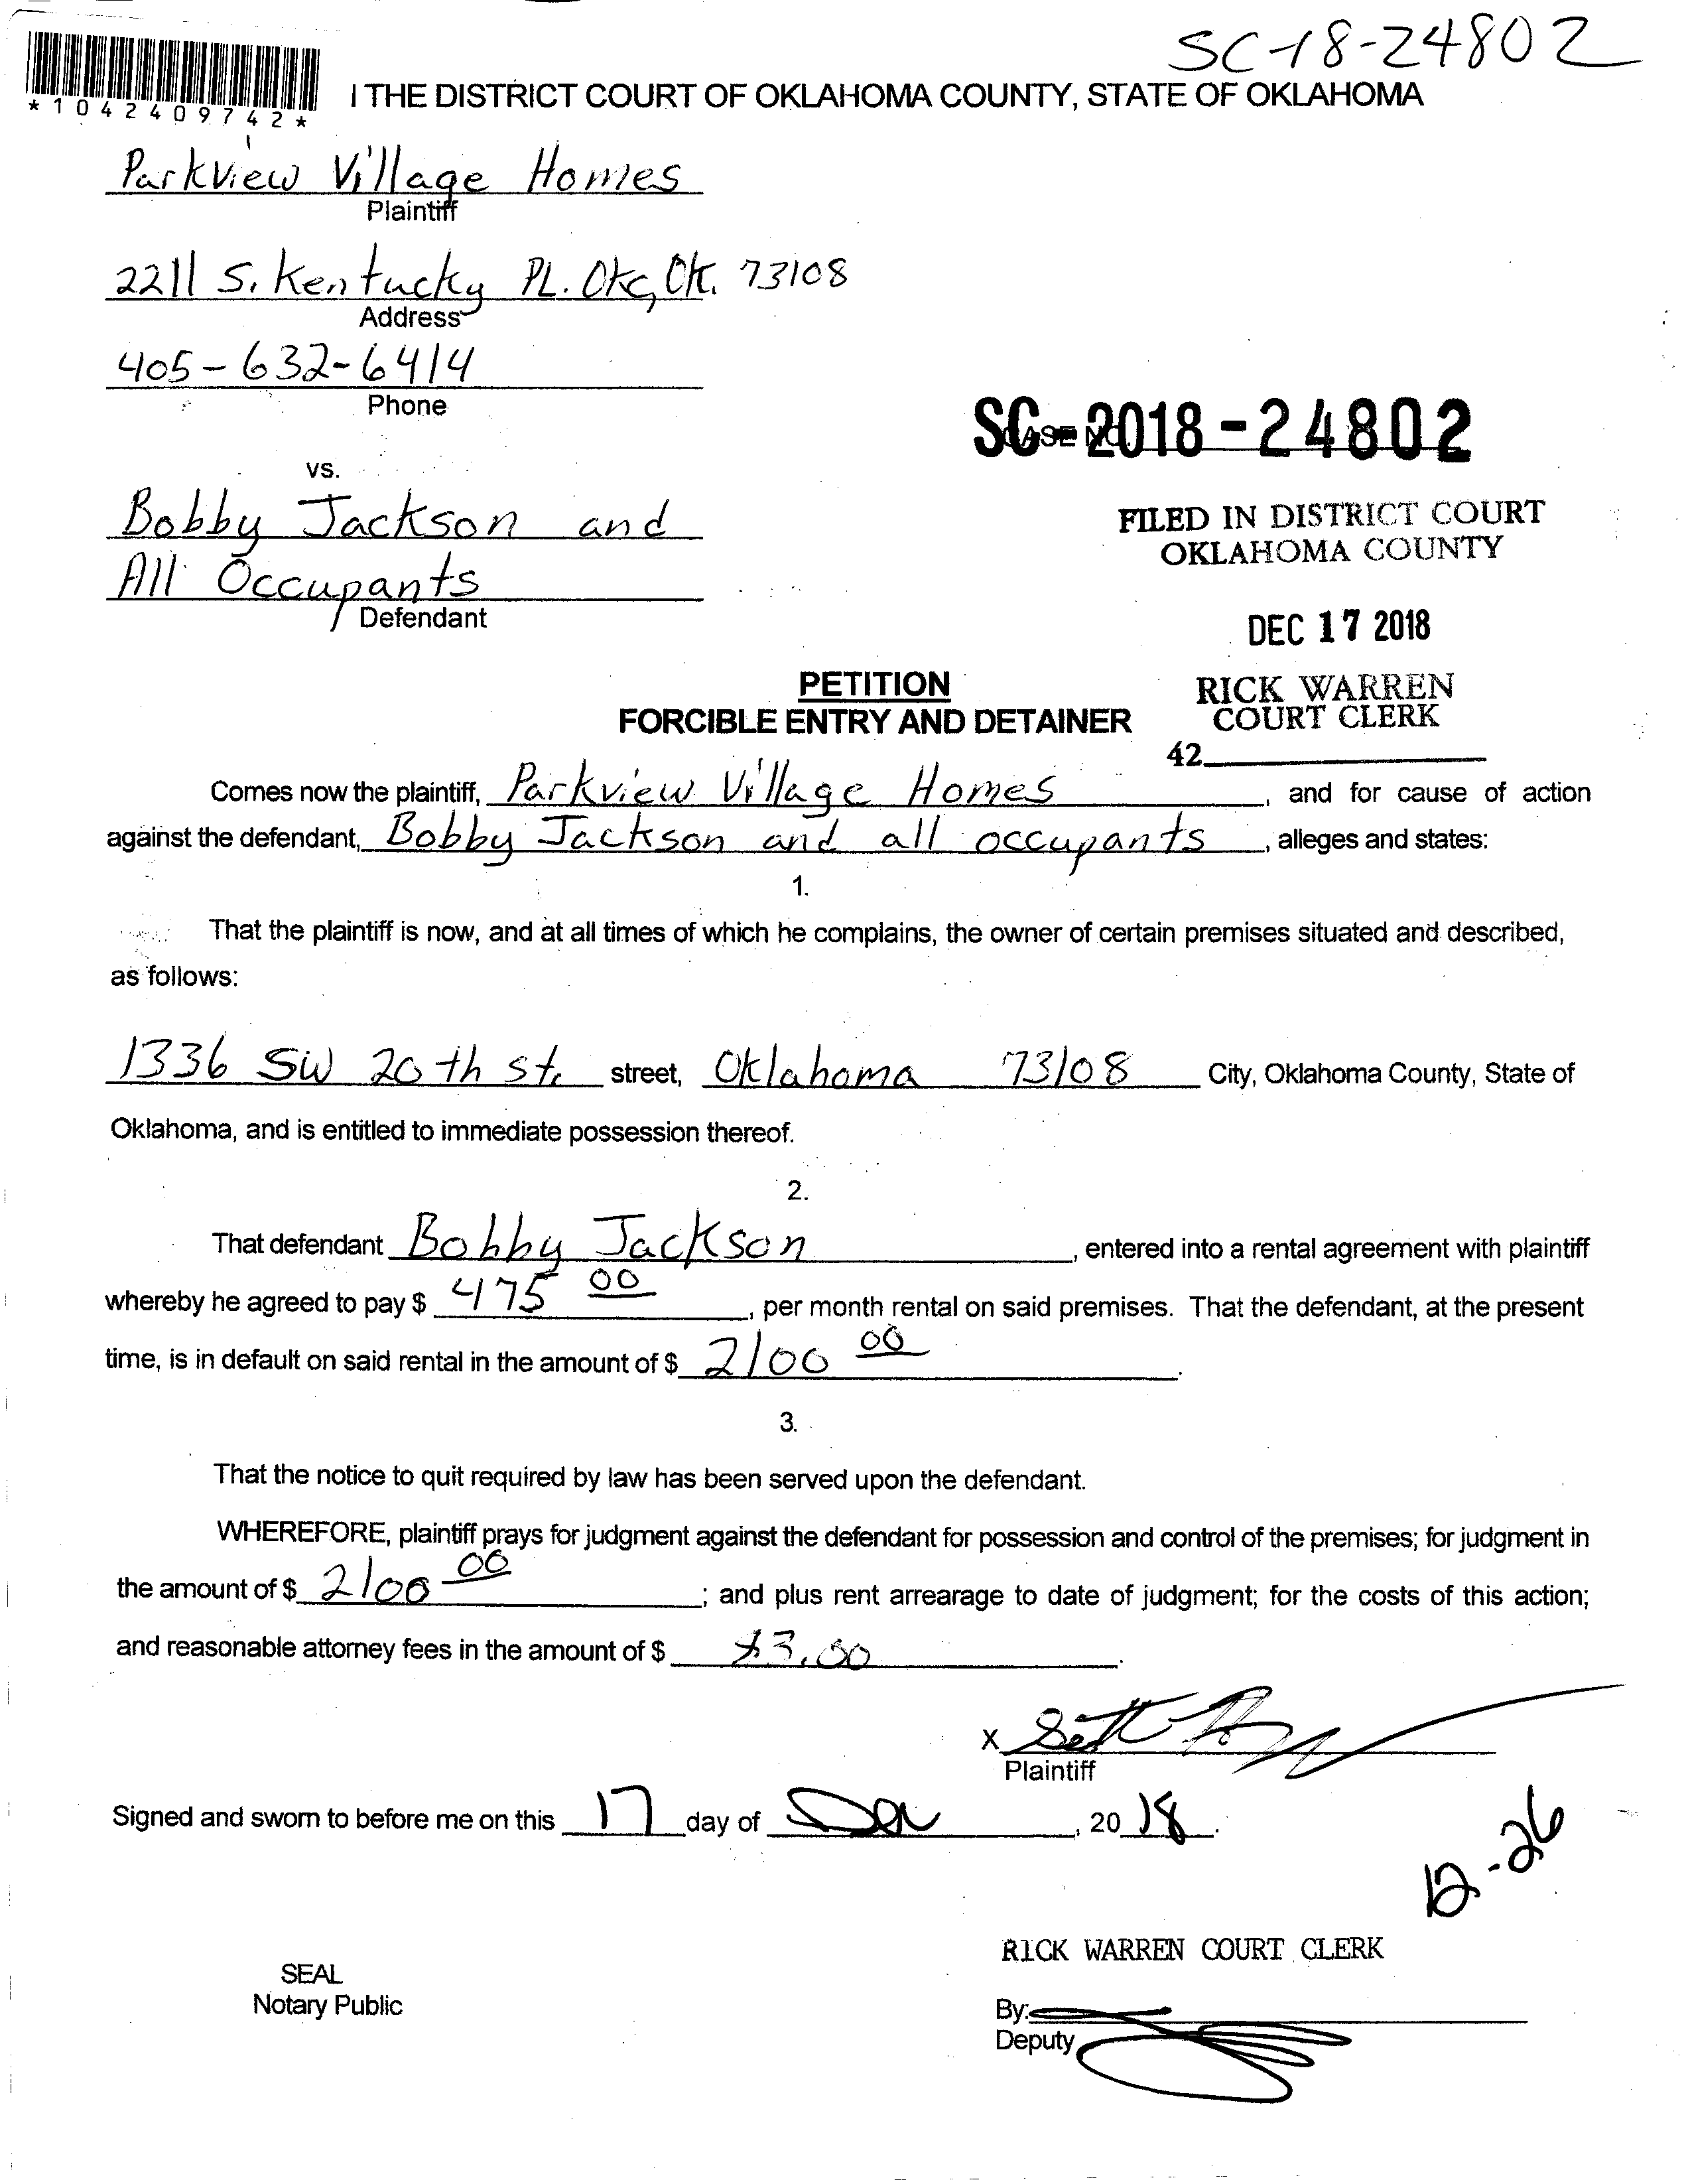 SC-18-24802
*1042409742*
I THE DISTRICT COURT OF OKLAHOMA COUNTY, STATE OF OKLAHOMA
Parkview Village Homes
Plaintiff
2211 S. Kentucky PL. Okc, Ok. 73108
Address
405-632-6414
Phone
SC-2018-24802
CASE NO.
vs.
Bobby Jackson and
All Occupants
Defendant
FILED IN DISTRICT COURT
OKLAHOMA COUNTY
DEC 17 2018
RICK WARREN
COURT CLERK
42
PETITION
FORCIBLE ENTRY AND DETAINER
Comes now the plaintiff, Parkview Village Homes, and for cause of action
against the defendant, Bobby Jackson and all occupants, alleges and states:
1.
That the plaintiff is now, and at all times of which he complains, the owner of certain premises situated and described,
as follows:
1336 SW 20th St. street, Oklahoma 73108 City, Oklahoma County, State of
Oklahoma, and is entitled to immediate possession thereof.
2.
That defendant Bobby Jackson, entered into a rental agreement with plaintiff
whereby he agreed to pay $ 475 00, per month rental on said premises. That the defendant, at the present
time, is in default on said rental in the amount of $ 2100 00.
3.
That the notice to quit required by law has been served upon the defendant.
WHEREFORE, plaintiff prays for judgment against the defendant for possession and control of the premises; for judgment in
the amount of $ 2100 00; and plus rent arrearage to date of judgment; for the costs of this action;
and reasonable attorney fees in the amount of $
X
Plaintiff
Signed and sworn to before me on this 17 day of Dec, 2018.
12-26
RICK WARREN COURT CLERK
SEAL
Notary Public
By:
Deputy